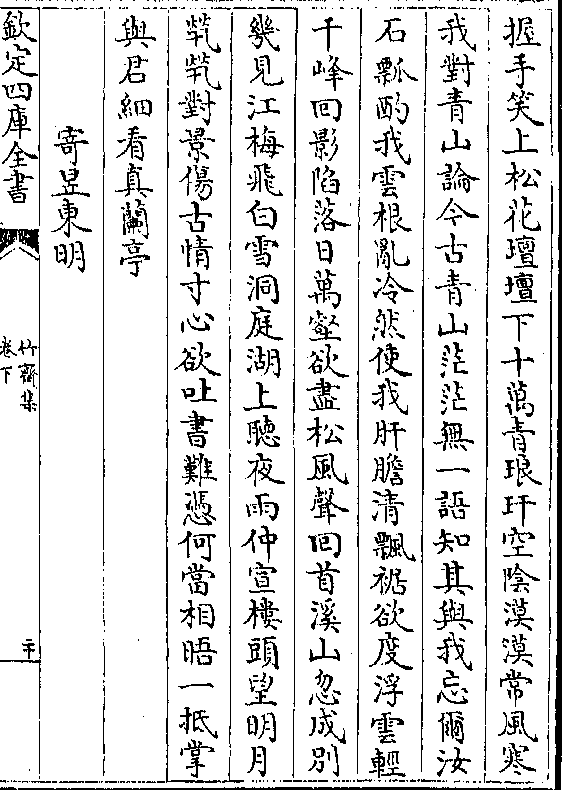 握手笑上松花壇壇下十萬青琅玕空陰漠漠常風寒
我對青山論今古青山茫茫無一語知其與我忘爾汝
石瓢酌我雲根亂冷然使我肝膽清飄裾欲度浮雲輕
千峰回影陷落日萬壑欲盡松風聲回首溪山忽成別
幾見江梅飛白雪洞庭湖上聽夜雨仲宣樓頭望明月
煢煢對景傷古情寸心欲吐書難憑何當相晤一抵掌
與君細看真蘭亭
寄昱東明
欽定四庫全書
竹齋集
卷下
二十